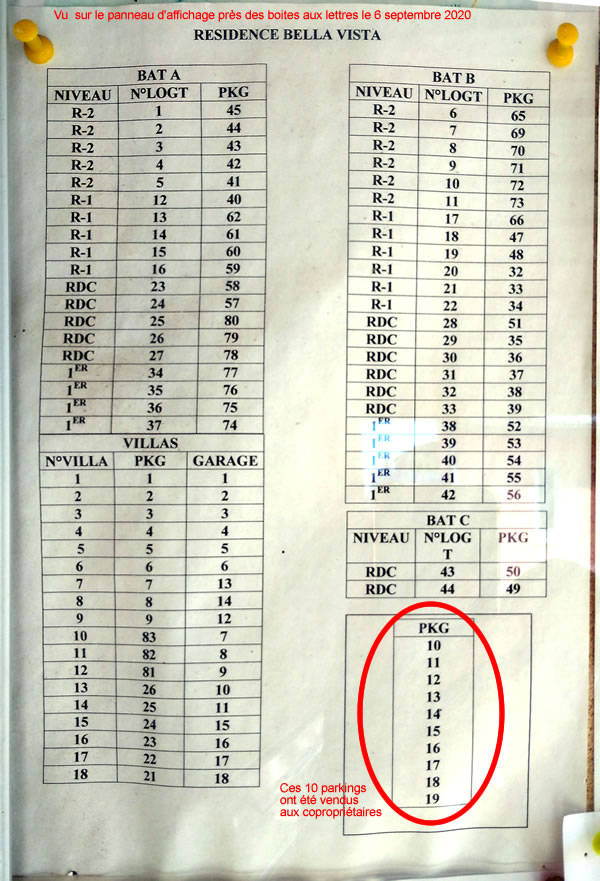 Vu sur le panneau d'affichage près des boites aux lettres le 6 septembre 2020
RESIDENCE BELLA VISTA
BAT A
NIVEAU N°LOGT PKG
R-2 1 45
R-2 2 44
R-2 3 43
R-2 4 42
R-2 5 41
R-1 12 40
R-1 13 62
R-1 14 61
R-1 15 60
R-1 16 59
RDC 23 58
RDC 24 57
RDC 25 80
RDC 26 79
RDC 27 78
1ER 34 77
1ER 35 76
1ER 36 75
1ER 37 74
VILLAS
N°VILLA PKG GARAGE
1 1 1
2 2 2
3 3 3
4 4 4
5 5 5
6 6 6
7 7 13
8 8 14
9 9 12
10 83 7
11 82 8
12 81 9
13 26 10
14 25 11
15 24 15
16 23 16
17 22 17
18 21 18
BAT B
NIVEAU N°LOGT PKG
R-2 6 65
R-2 7 69
R-2 8 70
R-2 9 71
R-2 10 72
R-2 11 73
R-1 17 66
R-1 18 47
R-1 19 48
R-1 20 32
R-1 21 33
R-1 22 34
RDC 28 51
RDC 29 35
RDC 30 36
RDC 31 37
RDC 32 38
RDC 33 39
1ER 38 52
1ER 39 53
1ER 40 54
1ER 41 55
1ER 42 56
BAT C
NIVEAU N°LOG PKG
T
RDC 43 50
RDC 44 49
PKG
10
11
12
13
14
15
16
17
18
19
Ces 10 parkings
ont été vendus
aux copropriétaires